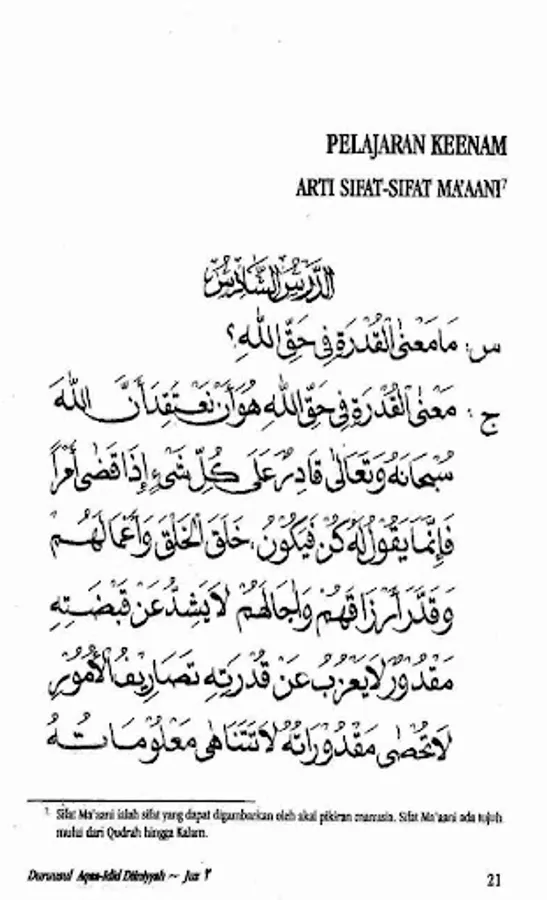 PELAJARAN KEENAM
ARTI SIFAT-SIFAT MA'AANI⁷
الدَّرْسُ السَّادِسُ
س : مَا مَعْنَى الْقُدْرَةِ فِي حَقِّ اللهِ؟
ج : مَعْنَى الْقُدْرَةِ فِي حَقِّ اللهِ هُوَ أَنْ نَعْتَقِدَ أَنَّ اللهَ
سُبْحَانَهُ وَتَعَالَى قَادِرٌ عَلَى كُلِّ شَيْءٍ إِذَا قَضَى أَمْرًا
فَإِنَّمَا يَقُولُ لَهُ كُنْ فَيَكُونُ، خَلَقَ الْخَلْقَ وَأَعْمَالَهُمْ
وَقَدَّرَ أَرْزَاقَهُمْ وَآجَالَهُمْ لَا يَشُذُّ عَنْ قَبْضَتِهِ
مَقْدُورٌ لَا يَعْزُبُ عَنْ قُدْرَتِهِ تَصَارِيفُ الْأُمُورِ
لَا تُحْصَى مَقْدُورَاتُهُ لَا تَتَنَاهَى مَعْلُومَاتُهُ
⁷ Sifat Ma'aani ialah sifat yang dapat digambarkan oleh akal pikiran manusia. Sifat Ma'aani ada tujuh
mulai dari Qudrah hingga Kalam.
Duruusul Aqaa-idid Diiniyyah ~ Juz ٣
21